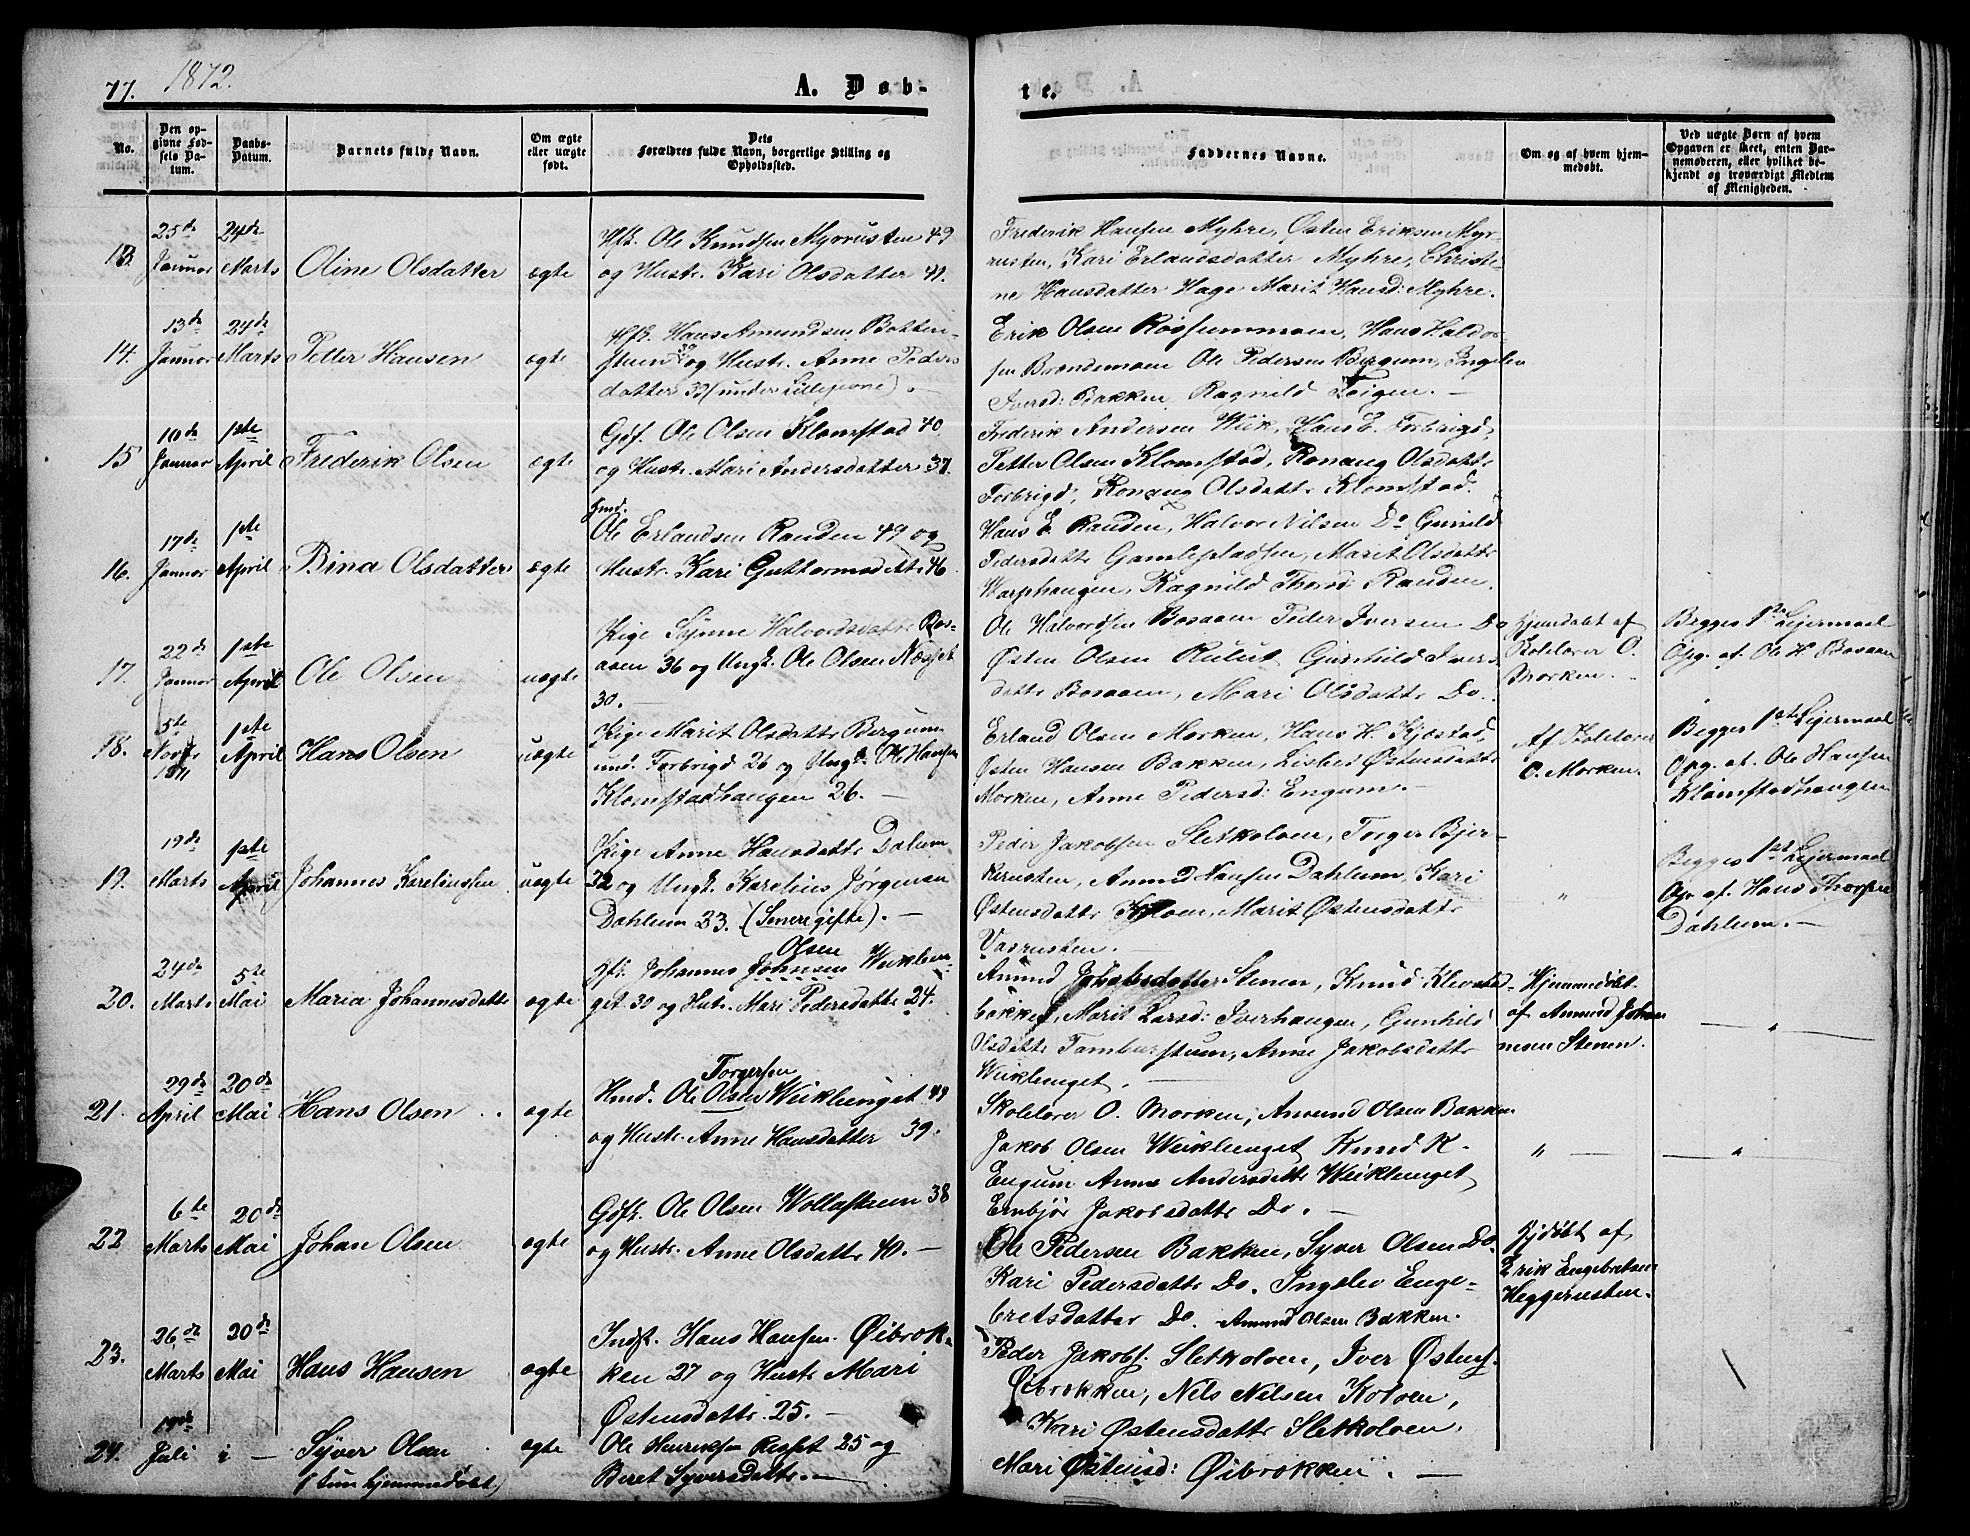 77. 1872.
A. Døb-
te.
No.
Den op-
givne Fød-
sels Da-
tum.
Daabs-
Datum.
Barnets fulde Navn.
Om ægte
eller uægte
født.
Dets
Forældres fulde Navn, borgerlige Stilling og
Opholdssted.
Faddernes Navne.
Om og af hvem hjem-
medøbt.
Ved uægte Børn af hvem
Opgaven er skeet, enten Bar-
nemoderen, eller hvilket be-
kjendt og troværdigt Medlem
af Menigheden.
13.
25de
Januar
24de
Marts
Oline Olsdatter
ægte
Hfk. Ole Knudsen Myrrusten 49
og Hustr. Kari Olsdatter 41.
Frederik Hansen Myhre, Østen Eriksen Myr-
rusten, Kari Erlandsdatter Myhre, Christi-
ne Hansdatter Hage Marit Hansd: Myhre.
14.
13de
Januar
24de
Marts
Petter Hansen
ægte
Hfk. Hans Amundsen Botten-
stuen 39 og Hustr. Anne Peders
datter 33 (under Lillejone).
Erik Olsen Røssummoen, Hans Haldo
sen Brændemoen Ole Pedersen Bergum, Ingelev
Iversd: Bakken Ragnild Teigen. —
15
10de
Januar
1ste
April
Frederik Olsen
ægte
Gdf. Ole Olsen Klomstad 40.
og Hustr. Mari Andersdatter 37.
Frederik Andersen Wiik, Hans E. Forbrigd,
Petter Olsen Klomstad, Ronnaug Olsdattr
Forbrigd, Ronnaug Olsdattr Klomstad.
16.
17de
Januar
1ste
April
Bina Olsdatter
ægte
Hmd.
Ole Erlandsen Randen 49 og
Hustr. Kari Guttormsdattr 46
Hans E. Randen, Halvor Nilsen Do Gunild
Pedersdattr Gamlepladsen, Marit Olsdattr
Warphaugen, Ragnild Thorsd: Randen.
17.
22de
Januar
1ste
April
Ole Olsen
uægte
Pige Synne Halvordsdattr Bos-
aaen 36 og Ungk. Ole Olsen Næsset
30. —
Ole Halvordsen Bosaaen Peder Iversen Do
Østen Olsen Rulut Gunhild Ivers
dattr Bosaaen, Mari Olsdattr Do.
Hjemdøbt af
Skolelærer O.
Morken.
Begges 1ste Leiermaal
Opg. af. Ole H. Bosaaen
18.
5te
Novbr
1871
1ste
April
Hans Olsen
uægte
Pige Marit Olsdattr Bergum
und. Forbrigd 26 og Ungk. Ole Hansen
Klomstadhaugen 26. —
Erland Olsen Morken, Hans H. Kjæstad,
Østen Hansen Bakken, Lisbed Østensdattr
Morken, Anne Pedersd: Engum. —
Af Skolelærer
O. Morken.
Begges 1ste Leiermaal
Opg. af. Ole Hansen
Klomstadhaugen
19.
19de
Marts
1ste
April
Johannes Kareliussen
uægte
Pige Anne Hansdattr Dalum
32 og Ungk. Karelius Jørgensen
Dahlum 23. (Senere gifte). —
Peder Jakobsen Sletkolven, Torger Bjer-
kerusten, Amund Hansen Dahlum, Kari
Østensdattr Kolven, Marit Østensdattr
Vasrusten. —
"
Begges 1ste Leiermaal
Opg. af. Hans Thorsen
Dahlum. —
20.
24de
Marts
5te
Mai
Maria Johannesdattr
ægte
Olsen
Hfk. Johannes Johnsen Weiklun-
get 30 og Hustr. Mari Pedersdattr 24.
Amund Johannesen Stenen, Knud Klevstad-
bakken, Marit Larsd: Iverhaugen, Gunhild
Olsdattr Tamburstuen, Anne Jakobsdattr
Weiklunget. —
Hjemmedøbt
af Amund Johan
nesen Stenen.
— " —
21.
29de
April
20de
Mai
Hans Olsen
ægte
Torgersen
Hmd. Ole Olsen Weiklunget 49
og Hustr. Anne Hansdatter 39.
Skolelærer O. Morken, Amund Olsen Bakken
Jakob Olsen Weiklunget Knud K.
Engum Anne Andersdattr Weiklunget
Embjør Jakobsdattr Do. —
" —
— " —
22
6te
Marts
20de
Mai
Johan Olsen
ægte
Gdfk. Ole Olsen Wollastuen 38
og Hustr. Anne Olsdattr 40. —
Ole Pedersen Bakken, Syver Olsen Do.
Kari Pedersdattr Do. Ingelev Enge-
bretsdatter Do. Amund Olsen Bakken.
Hjdøbt af
Erik Engebretsen
Heggerusten.
23.
26de
Marts
20de
Mai
Hans Hansen
ægte
Indst. Hans Hansen Øibrok-
ken 27 og Hustr Mari
Østensdattr. 25. —
Peder Jakobs. Sletkolven, Iver Østens.
Øibrokken, Nels Nilsen Kolven,
Kari Østensdattr Sletkolven,
Mari Østensd: Øibrokken. —
24.
19de
Juli
i —
Syver Olsen
(kun hjemmedøbt)
ægte
Ole Henriksen Russet 25 og
Beret Syversdattr. —